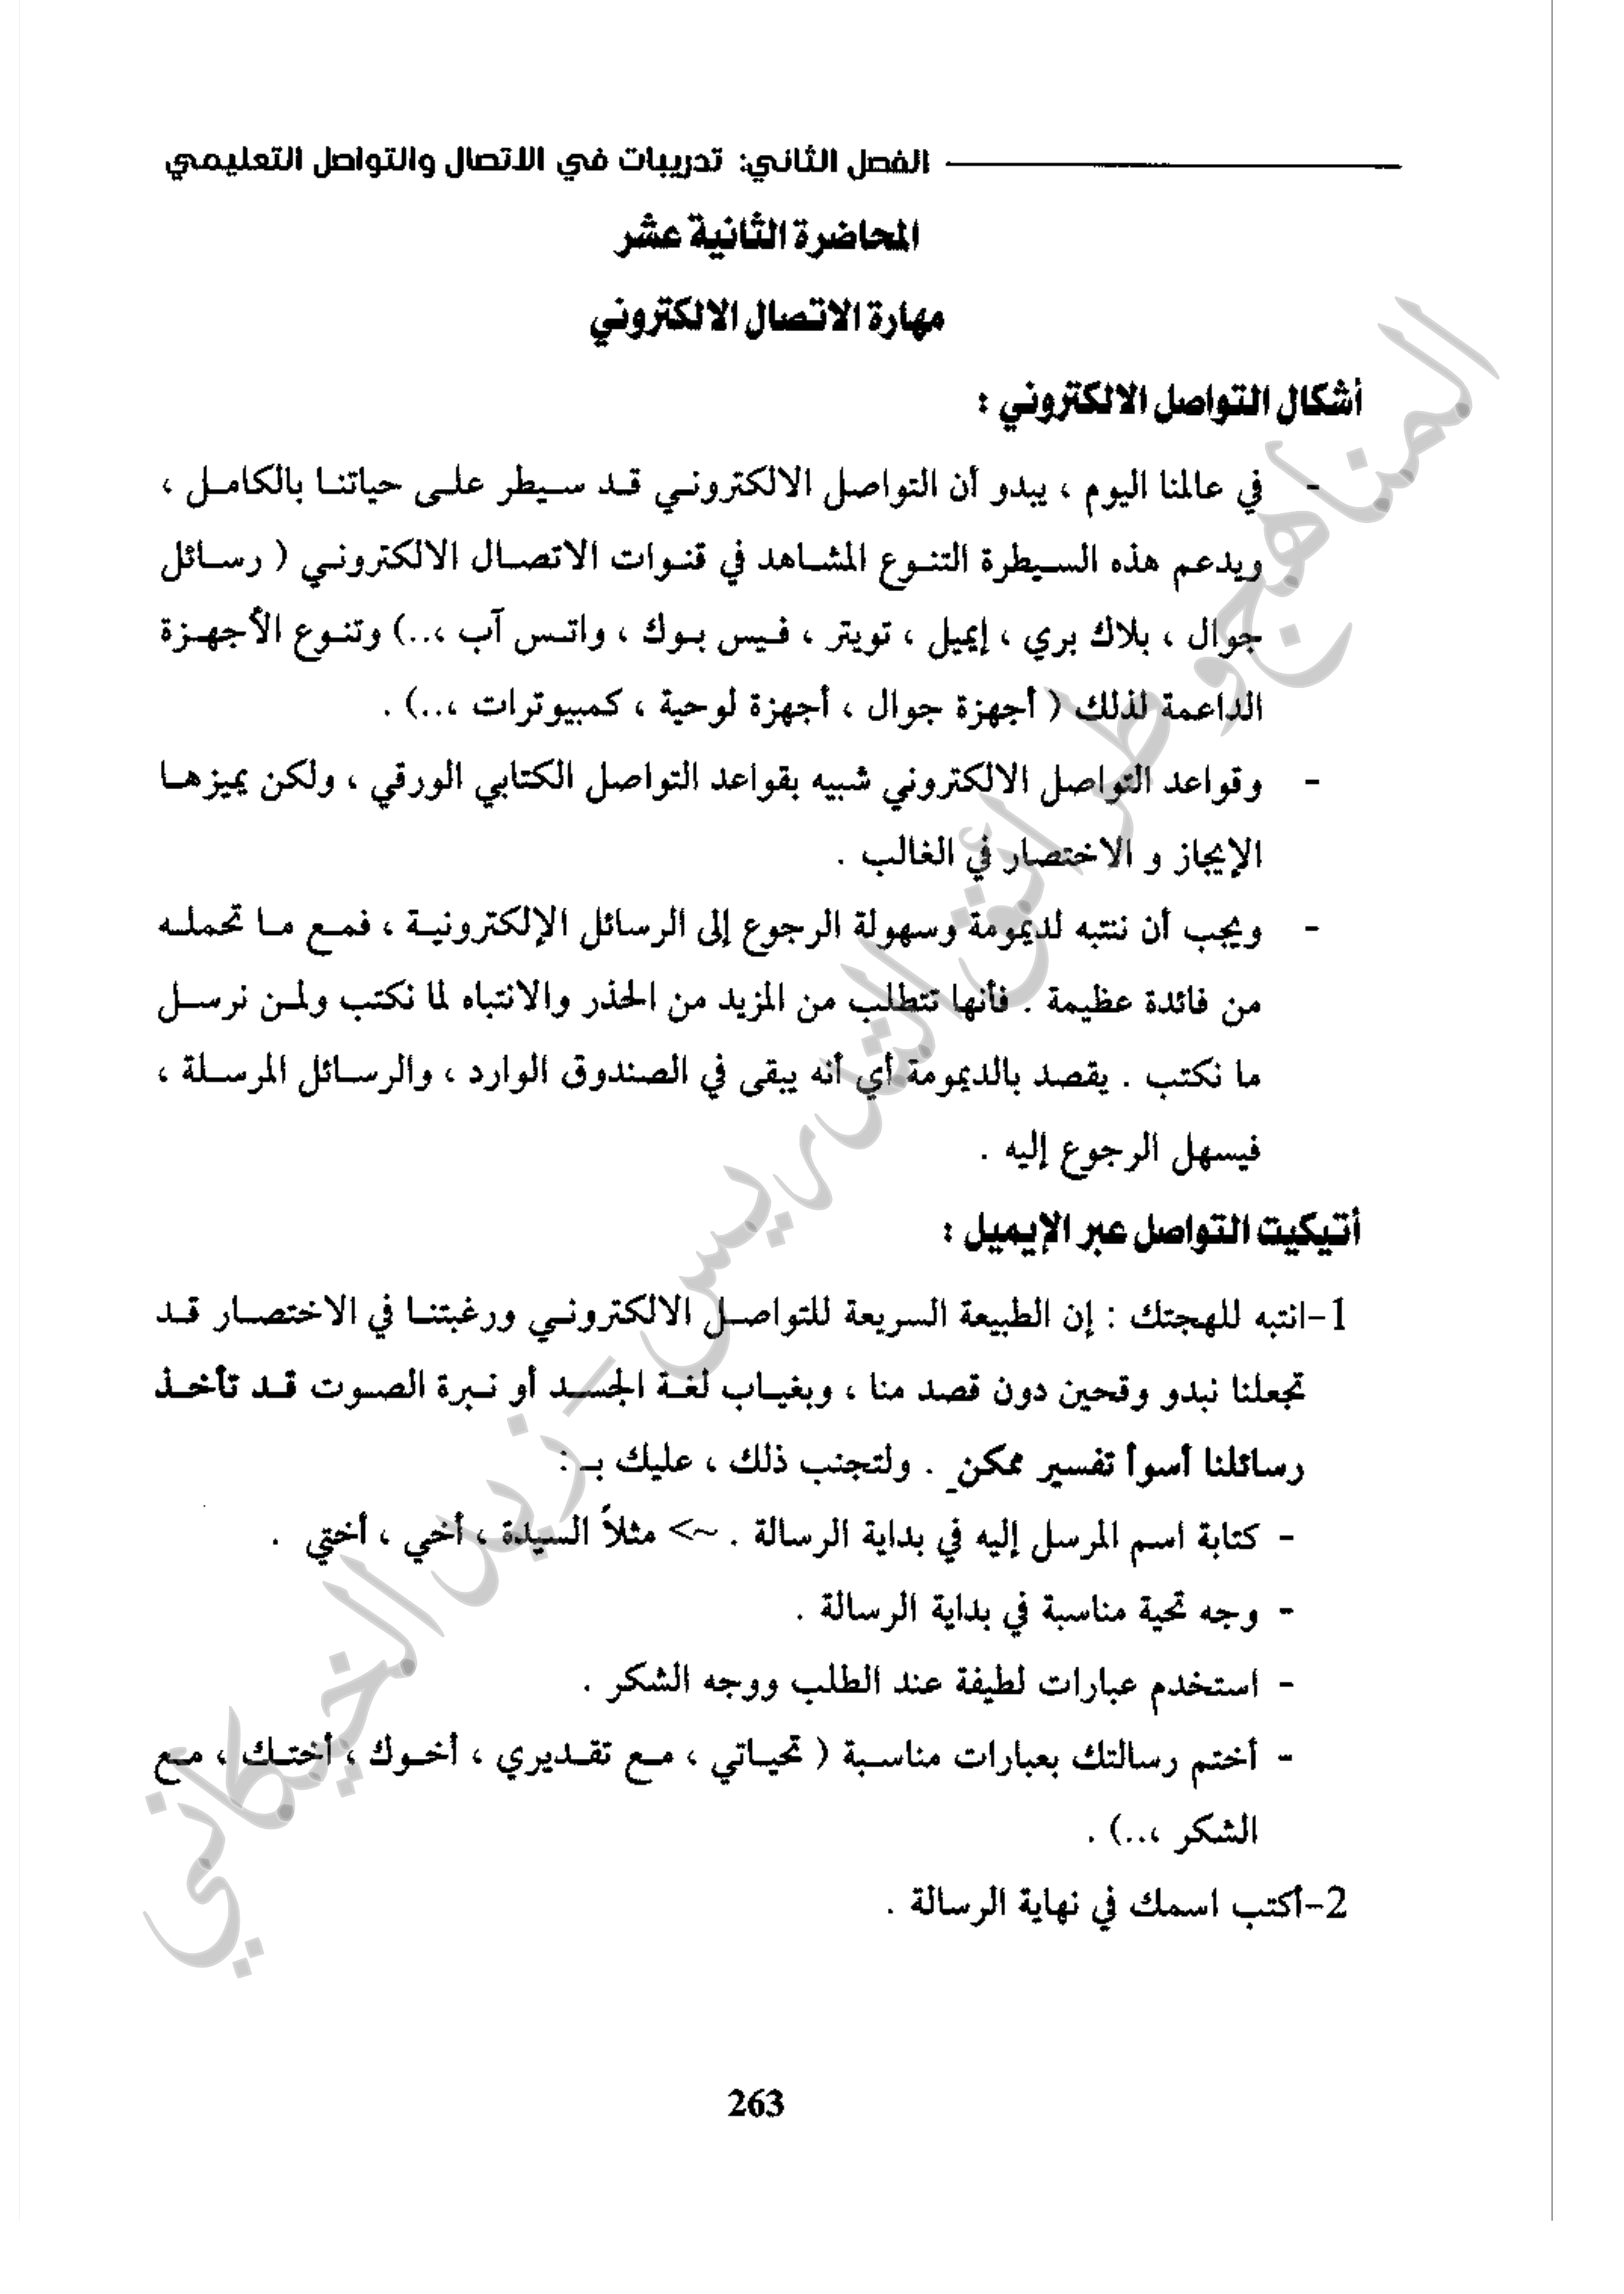 الفصل الثاني: تدريبات في الاتصال والتواصل التعليمي
المحاضرة الثانية عشر
مهارة الاتصال الالكتروني
أشكال التواصل الالكتروني :
- في عالمنا اليوم ، يبدو أن التواصل الالكتروني قد سيطر على حياتنا بالكامل ،
ويدعم هذه السيطرة التنوع المشاهد في قنوات الاتصال الالكتروني ( رسائل
جوال ، بلاك بري ، إيميل ، تويتر ، فيس بوك ، واتس آب ،..) وتنوع الأجهزة
الداعمة لذلك ( أجهزة جوال ، أجهزة لوحية ، كمبيوترات ،..) .
- وقواعد التواصل الالكتروني شبيه بقواعد التواصل الكتابي الورقي ، ولكن يميزها
الإيجاز و الاختصار في الغالب .
- ويجب أن ننتبه لديمومة وسهولة الرجوع إلى الرسائل الإلكترونية ، فمع ما تحمله
من فائدة عظيمة . فأنها تتطلب من المزيد من الحذر والانتباه لما نكتب ولمن نرسل
ما نكتب . يقصد بالديمومة أي أنه يبقى في الصندوق الوارد ، والرسائل المرسلة ،
فيسهل الرجوع إليه .
أتيكيت التواصل عبر الإيميل :
1-انتبه للهجتك : إن الطبيعة السريعة للتواصل الالكتروني ورغبتنا في الاختصار قد
تجعلنا نبدو وقحين دون قصد منا ، وبغياب لغة الجسد أو نبرة الصوت قد تأخذ
رسائلنا أسوأ تفسير ممكن . ولتجنب ذلك ، عليك بـ :
- كتابة اسم المرسل إليه في بداية الرسالة . ~> مثلاً السيدة ، أخي ، أختي .
- وجه تحية مناسبة في بداية الرسالة .
- استخدم عبارات لطيفة عند الطلب ووجه الشكر .
- أختم رسالتك بعبارات مناسبة ( تحياتي ، مع تقديري ، أخوك ، أختك ، مع
الشكر ،..) .
2-أكتب اسمك في نهاية الرسالة .
263
المناهج وطرائق التدريس - زيد الخيكاني